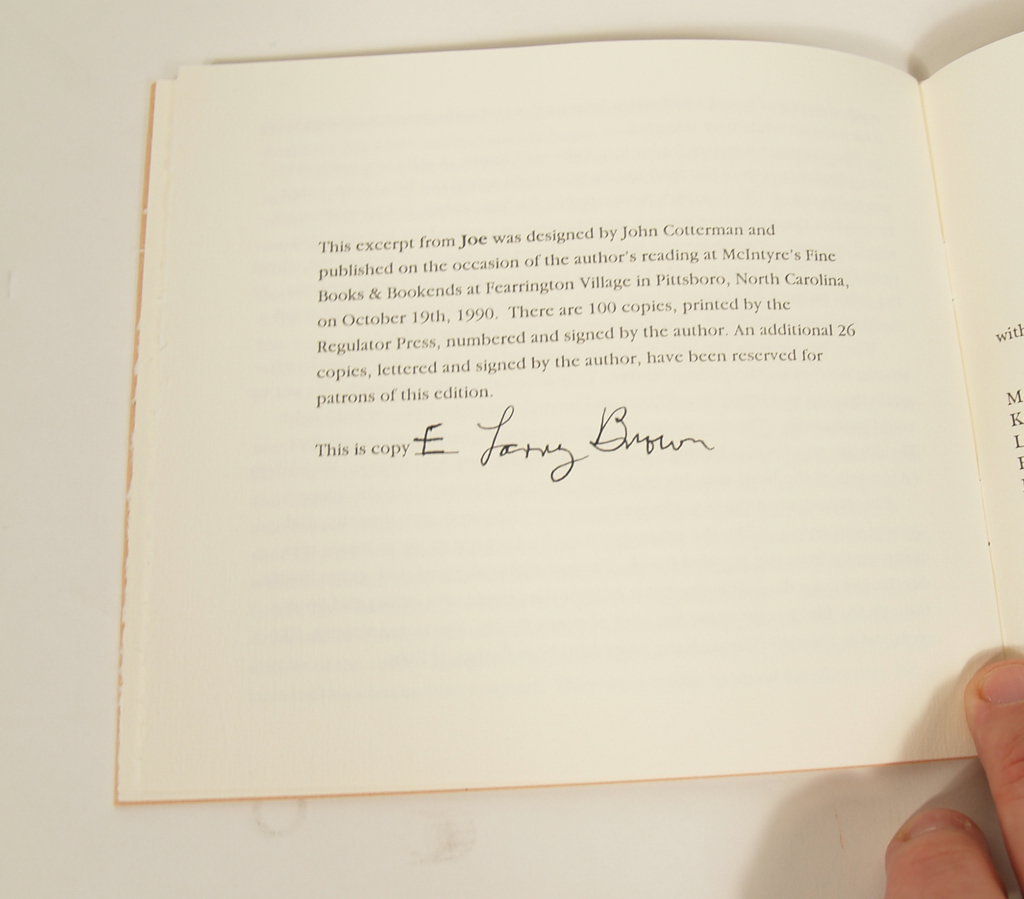 This excerpt from Joe was designed by John Cotterman and
published on the occasion of the author's reading at McIntyre's Fine
Books & Bookends at Fearrington Village in Pittsboro, North Carolina,
on October 19th, 1990. There are 100 copies, printed by the
Regulator Press, numbered and signed by the author. An additional 26
copies, lettered and signed by the author, have been reserved for
patrons of this edition.
This is copy E Larry Brown
with
M
K
L